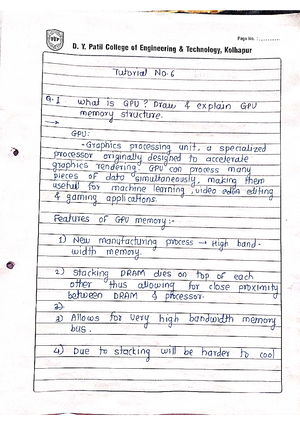 Page No. :
D. Y. Patil College of Engineering & Technology, Kolhapur
Tutorial No. 6
Q.1 What is GPU? Draw & explain GPU
memory structure.
→
GPU:
- Graphics processing unit, a specialized
processor originally designed to accelerate
graphics rendering. GPU can process many
pieces of data simultaneously, making them
useful for machine learning, video editing
& gaming applications.
Features of GPU memory:-
1) New manufacturing process → High band-
width memory.
2) Stacking DRAM dies on top of each
other thus allowing for close proximity
between DRAM & processor.
3)
3) Allows for very high bandwidth memory
bus.
4) Due to stacking will be harder to cool